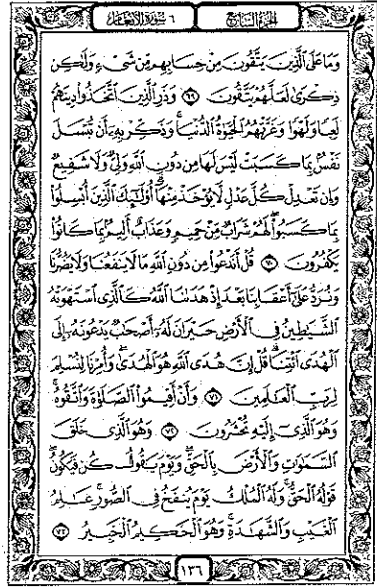 الجزء السابع
٦ سورة الأنعام
وَمَا عَلَى الَّذِينَ يَتَّقُونَ مِنْ حِسَابِهِم مِّن شَيْءٍ وَلَٰكِن
ذِكْرَىٰ لَعَلَّهُمْ يَتَّقُونَ ٦٩ وَذَرِ الَّذِينَ اتَّخَذُوا دِينَهُمْ
لَعِبًا وَلَهْوًا وَغَرَّتْهُمُ الْحَيَوٰةُ الدُّنْيَا وَذَكِّرْ بِهِ أَن تُبْسَلَ
نَفْسٌ بِمَا كَسَبَتْ لَيْسَ لَهَا مِن دُونِ اللَّهِ وَلِيٌّ وَلَا شَفِيعٌ
وَإِن تَعْدِلْ كُلَّ عَدْلٍ لَّا يُؤْخَذْ مِنْهَا أُولَٰئِكَ الَّذِينَ أُبْسِلُوا
بِمَا كَسَبُوا لَهُمْ شَرَابٌ مِّنْ حَمِيمٍ وَعَذَابٌ أَلِيمٌ بِمَا كَانُوا
يَكْفُرُونَ ٧٠ قُلْ أَنَدْعُوا مِن دُونِ اللَّهِ مَا لَا يَنفَعُنَا وَلَا يَضُرُّنَا
وَنُرَدُّ عَلَىٰ أَعْقَابِنَا بَعْدَ إِذْ هَدَىٰنَا اللَّهُ كَالَّذِي اسْتَهْوَتْهُ
الشَّيَٰطِينُ فِي الْأَرْضِ حَيْرَانَ لَهُ أَصْحَٰبٌ يَدْعُونَهُ إِلَى
الْهُدَى ائْتِنَا قُلْ إِنَّ هُدَى اللَّهِ هُوَ الْهُدَىٰ وَأُمِرْنَا لِنُسْلِمَ
لِرَبِّ الْعَٰلَمِينَ ٧١ وَأَنْ أَقِيمُوا الصَّلَوٰةَ وَاتَّقُوهُ
وَهُوَ الَّذِي إِلَيْهِ تُحْشَرُونَ ٧٢ وَهُوَ الَّذِي خَلَقَ
السَّمَٰوَٰتِ وَالْأَرْضَ بِالْحَقِّ وَيَوْمَ يَقُولُ كُن فَيَكُونُ
قَوْلُهُ الْحَقُّ وَلَهُ الْمُلْكُ يَوْمَ يُنفَخُ فِي الصُّورِ عَٰلِمُ
الْغَيْبِ وَالشَّهَٰدَةِ وَهُوَ الْحَكِيمُ الْخَبِيرُ ٧٣
١٣٦